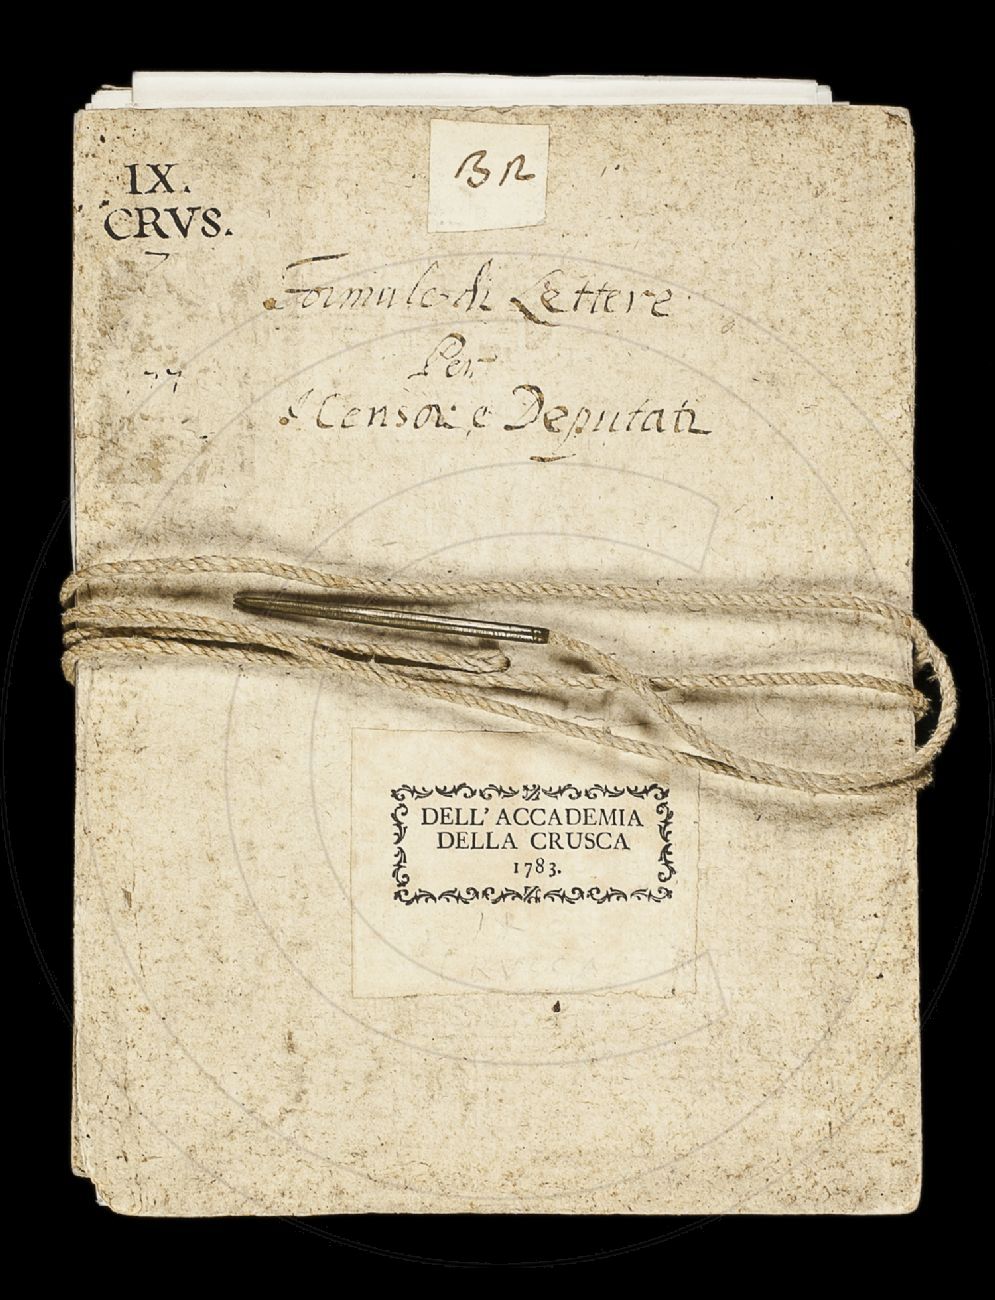 BR
IX.
CRVS.
Formule di Lettere
Per
I Censori e Deputati
DELL' ACCADEMIA
DELLA CRUSCA
1783.